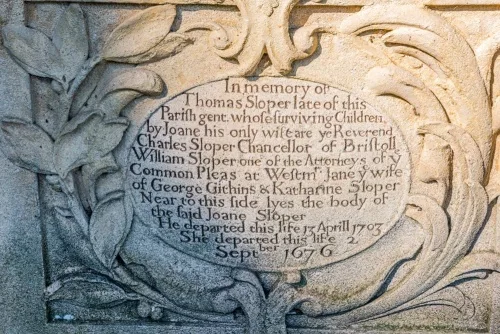 In memory of
Thomas Sloper late of this
Parish gent. whose surviving Children,
by Joane his only wife are ye Reverend
Charles Sloper Chancellor of Bristoll
William Sloper one of the Attorneys of y
Common Pleas at Westmr Jane y wife
of George Githins & Katharine Sloper
Near to this side lyes the body of
the said Joane Sloper
He departed this life 13 Aprill 1703
She departed this life 2
Septber 1676